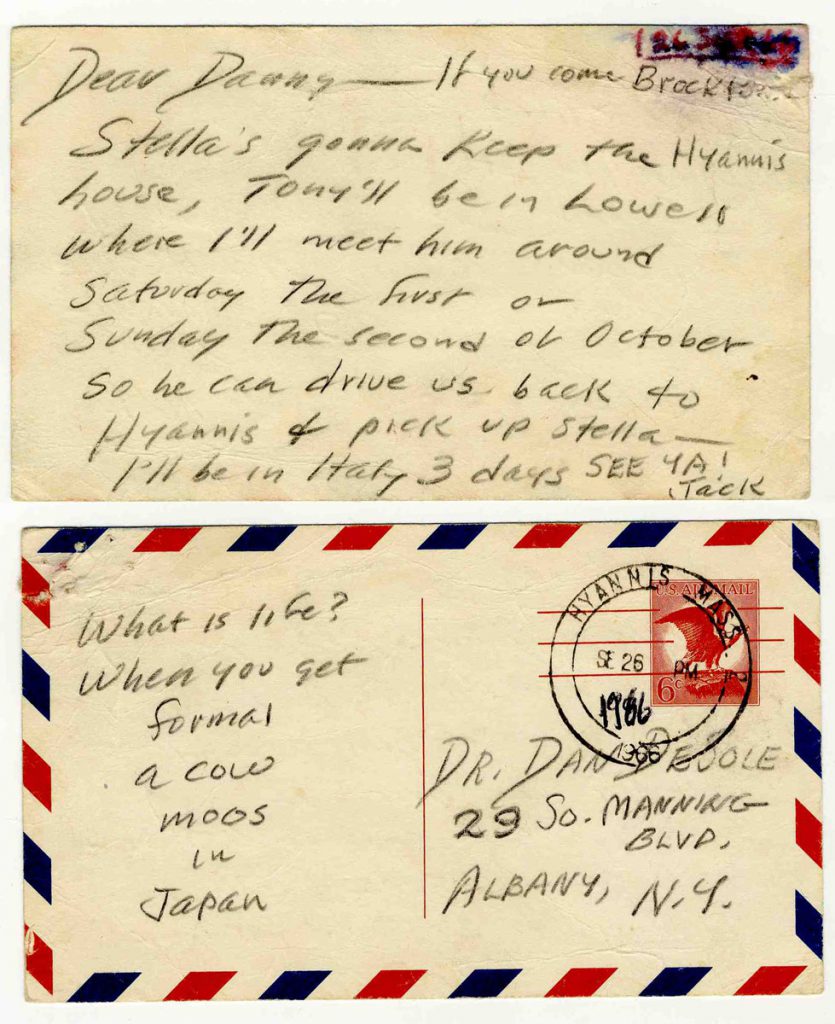 Dear Danny — If you come Brockton
Stella's gonna keep the Hyannis
house, Tony'll be in Lowell
where I'll meet him around
Saturday the first or
Sunday the second of October
so he can drive us back to
Hyannis & pick up Stella —
I'll be in Italy 3 days SEE YA!
Jack
What is life?
When you get
formal
a cow
moos
in
Japan
HYANNIS MASS. 2
U.S. AIR MAIL
SE 26 PM
6c
1966
1966
DR. DAN DESOLE
29 So. MANNING
BLVD.
ALBANY, N.Y.